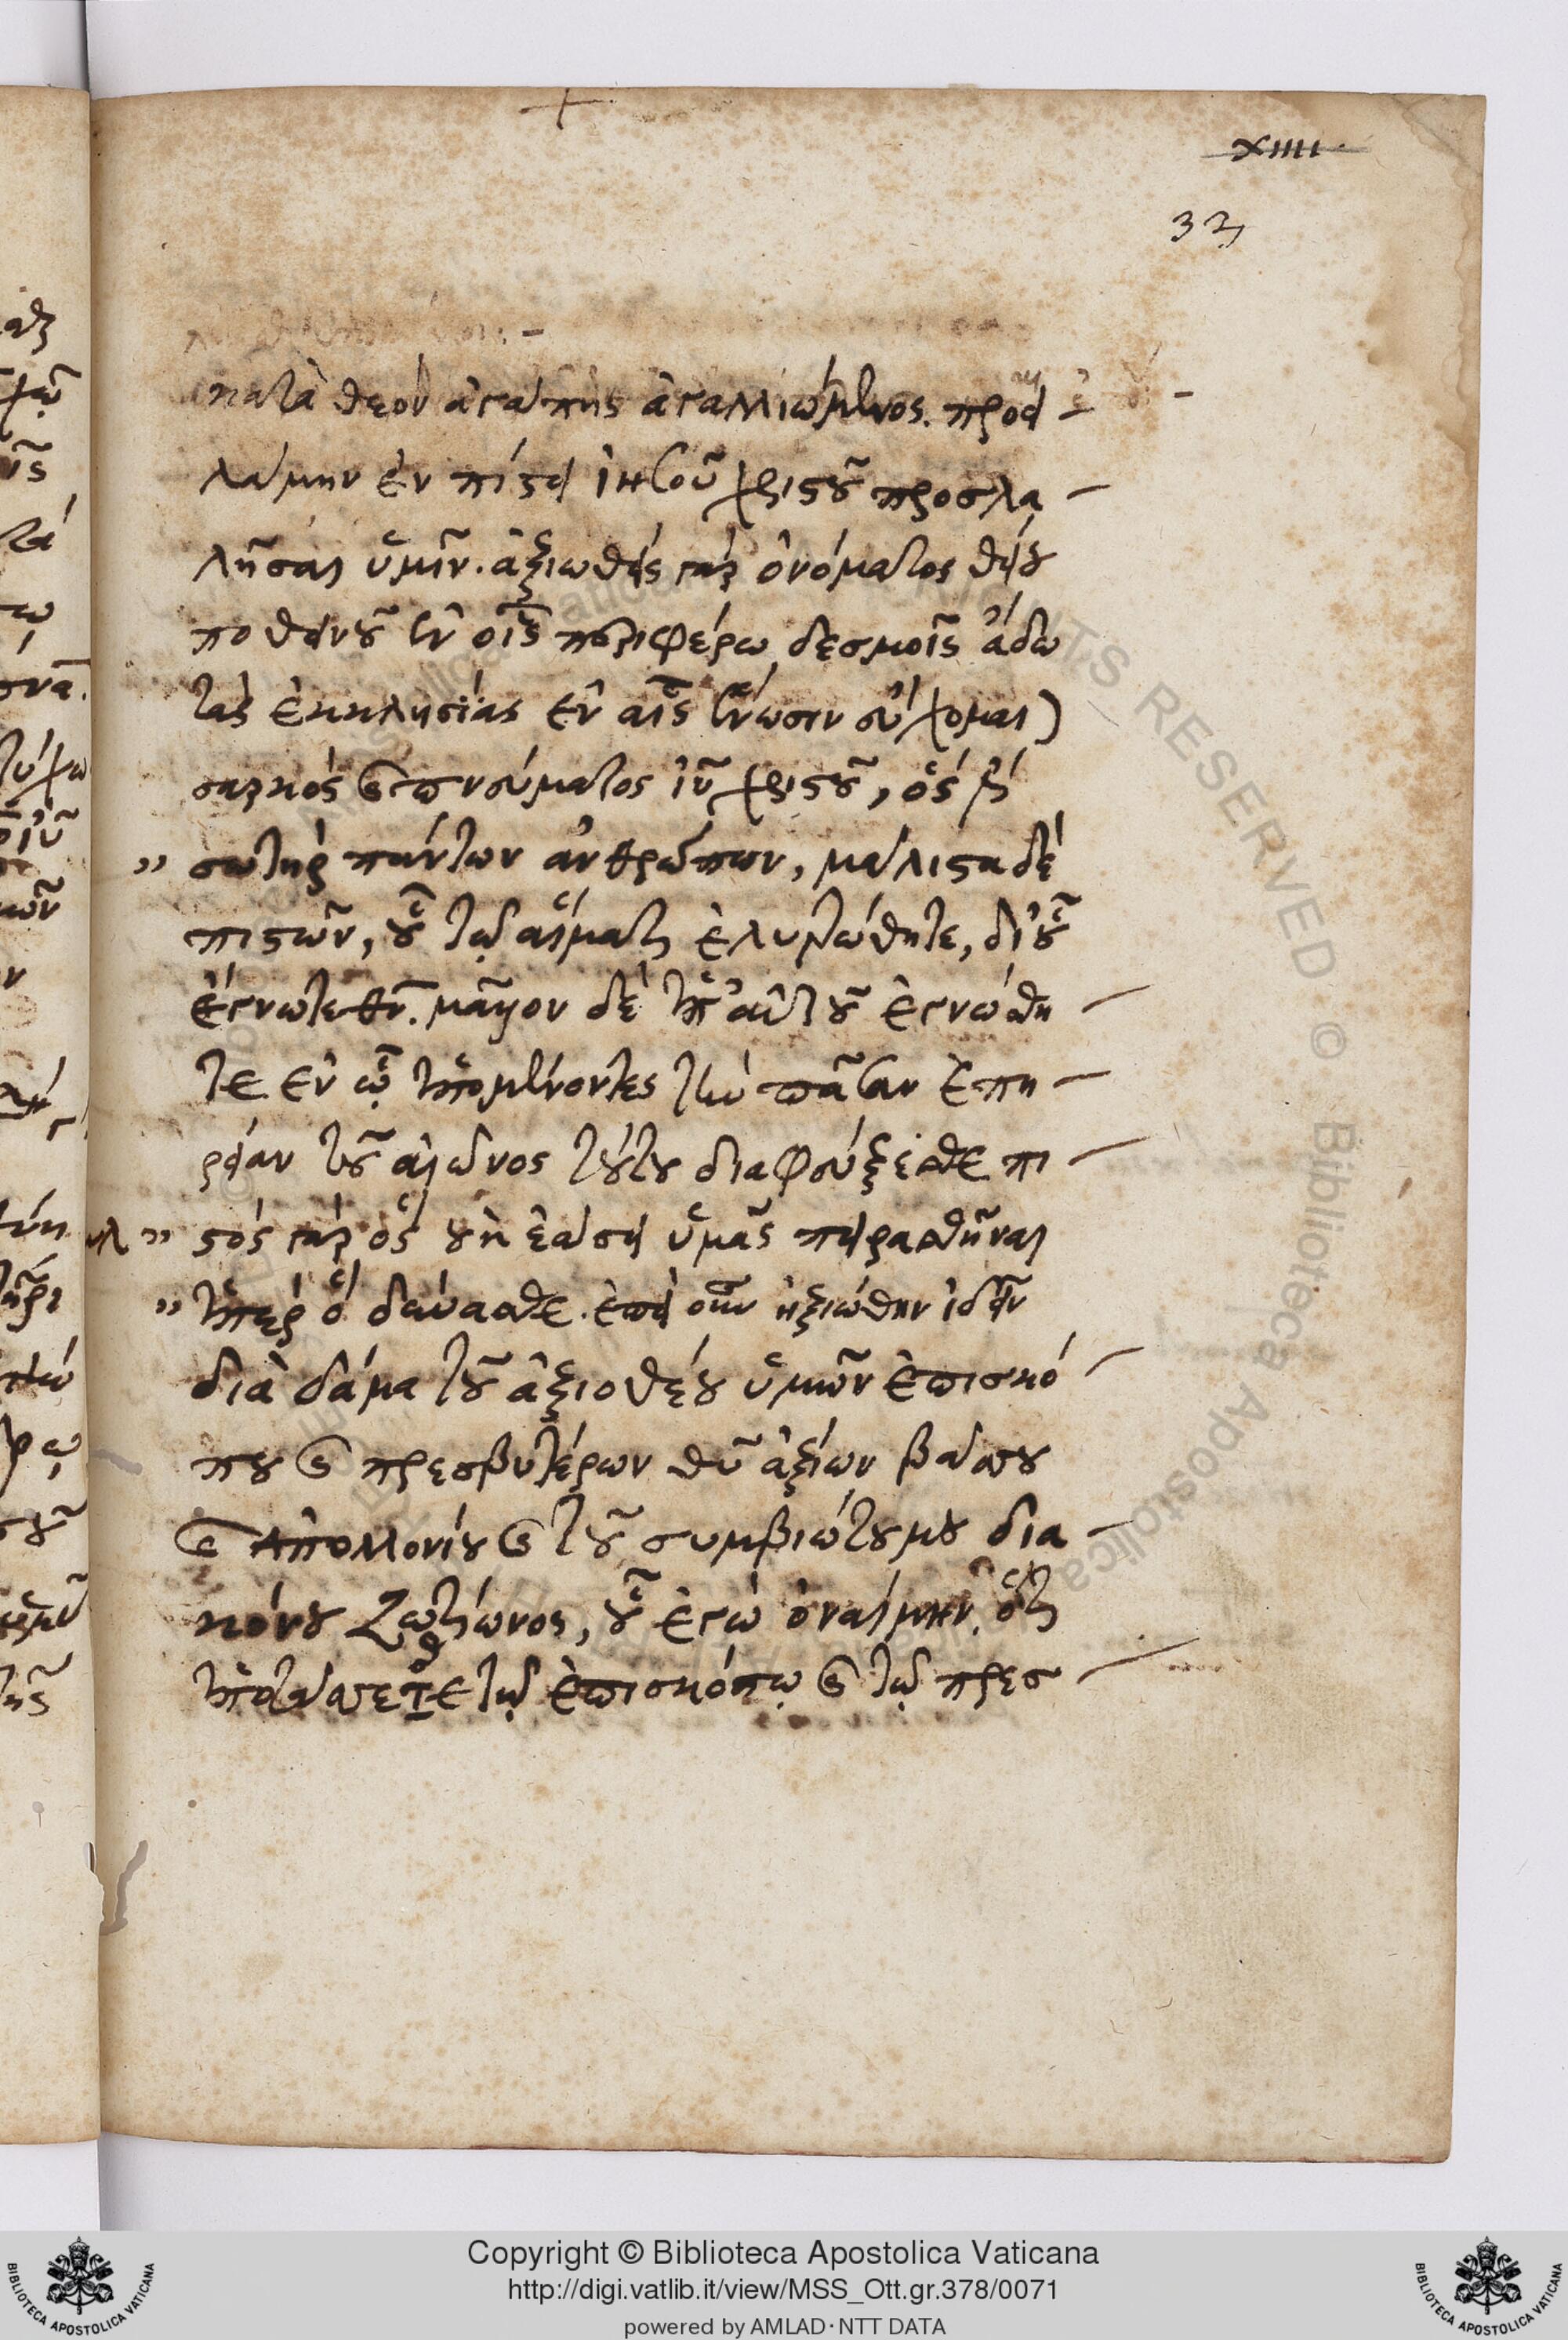 xiiii.
33
κατὰ θεὸν ἀγάπης ἀγαλλιώμενος. προει
λάμην ἐν πίστει ἰησοῦ χριστοῦ προσλα
λῆσαι ὑμῖν. ἀξιωθεὶς γὰρ ὀνόματος θείου
ποθεινοῦ ἐν οἷς περιφέρω δεσμοῖς ἄδω
τὰς ἐκκλησίας ἐν αἷς ἕνωσιν εὔχομαι
σαρκὸς καὶ πνεύματος ἰυ χριστοῦ, ὅς ἐστι
" σωτὴρ πάντων ἀνθρώπων, μάλιστα δὲ
πιστῶν, οὗ τῷ αἵματι ἐλυτρώθητε, δι' οὗ
ἔγνωτε θν. μᾶλλον δὲ ὑπ' αὐτοῦ ἐγνώσθη
τε ἐν ᾧ ὑπομένοντες τὴν πᾶσαν ἐπή
ρειαν τοῦ αἰῶνος τούτου διαφεύξεσθε πι
" στὸς γὰρ ὃς οὐκ ἐάσει ὑμᾶς πειρασθῆναι
" ὑπὲρ ὃ δύνασθε. ἐπεὶ οὖν ἠξιώθην ἰδεῖν
διὰ δάμα τοῦ ἀξιοθέου ὑμῶν ἐπισκό
που καὶ πρεσβυτέρων θυ ἀξίων βάσσου
καὶ ἀπολλονίου καὶ τοῦ συμβιώτου μου δια
κόνου Ζωτίωνος, οὗ ἐγὼ ὀναίμην. ὅτι
ὑποτάσσεται τῷ ἐπισκόπῳ καὶ τῷ πρεσ
Copyright © Biblioteca Apostolica Vaticana
http://digi.vatlib.it/view/MSS_Ott.gr.378/0071
powered by AMLAD·NTT DATA